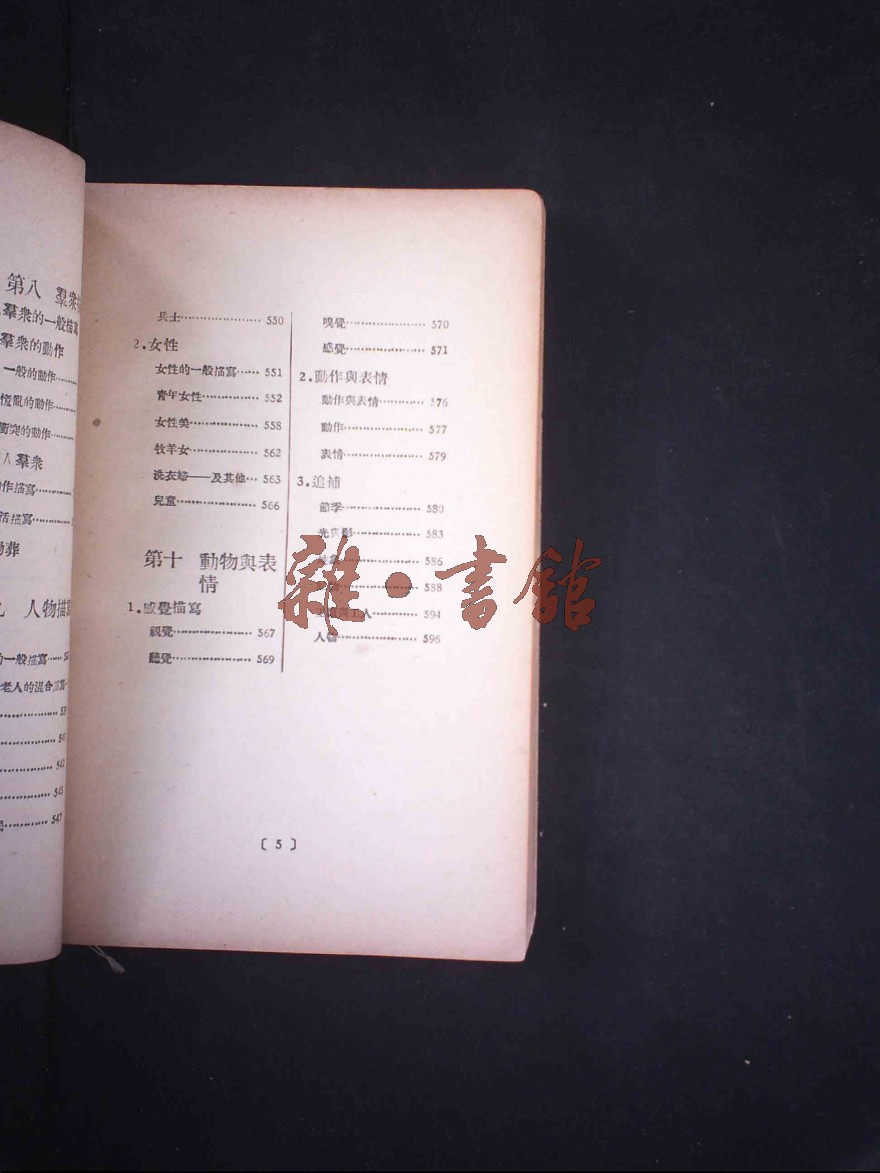 第八 羣衆
羣衆的一般描寫
羣衆的動作
一般的動作
慌亂的動作
衝突的動作
人羣衆
作描寫
活描寫
葬
人物描
的一般描寫
老人的混合描寫
542
545
547
兵士 550
2.女性
女性的一般描寫 551
青年女性 552
女性美 558
牧羊女 562
洗衣婦——及其他 563
兒童 566
第十 動物與表
情
1.感覺描寫
視覺 567
聽覺 569
嗅覺 570
感覺 571
2.動作與表情
動作與表情 576
動作 577
表情 579
3.追補
節季 580
光與影 583
586
588
工人 594
人物 596
〔 5 〕
雜·書館